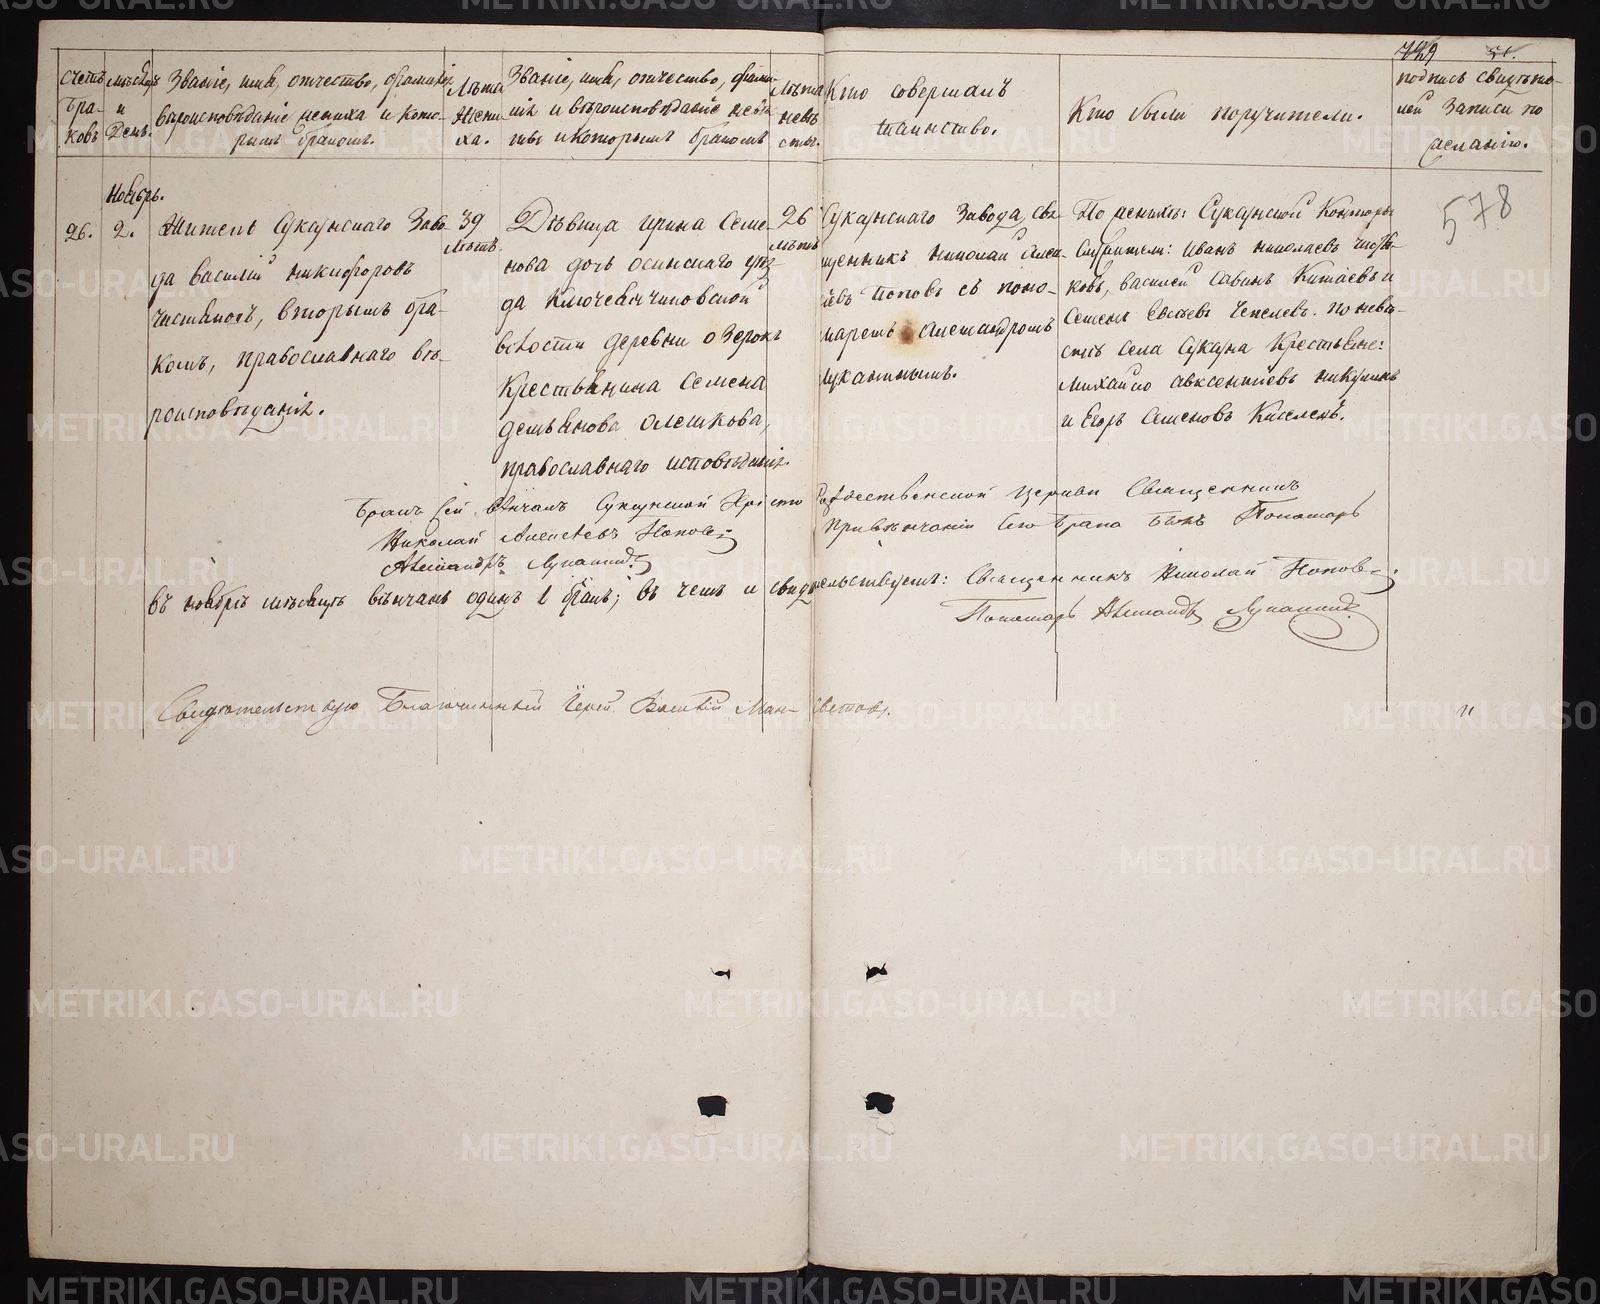 749
Счетъ бра-ковъ
Мѣсяцъ и День.
Званіе, имя, отчество, фамилія,
вѣроисповѣданіе жениха и кото-
рымъ бракомъ.
Лѣта Жени-ха.
Званіе, имя, отчество, фами-
лія и вѣроисповѣданіе невѣ-
сты и которымъ бракомъ
Лѣта невѣ-сты.
Кто совершалъ
таинство.
Кто были поручители.
подпись свидѣте-
лей записи по
желанію.
578
Ноябрь.
26.
2.
Житель Суксунскаго Заво-
да Василій Никифоровъ
вторымъ бра-
комъ, православнаго вѣ-
роисповѣданія.
39
лѣтъ.
Дѣвица Ирина Семе-
нова дочь Осинскаго уѣз-
да Ключевской
волости деревни Озерокъ
Крестьянина Семена
Демьянова Олешкова,
православнаго исповѣданія.
26
лѣтъ
Суксунскаго Завода, свя-
щенникъ Николай Алек-
сѣевъ Поповъ съ поно-
маремъ Александромъ
Лукинымъ.
По женихѣ: Суксунской Конторы
Служители: Иванъ Николаевъ
ковъ, Василей Савинъ Китаевъ и
Семенъ По невѣ-
стѣ Села Суксуна Крестьяне:
Михайло Авксентіевъ Никулинъ
и Егоръ Семеновъ Киселевъ.
Бракъ сей вѣнчалъ Суксунской Христорождественской Церкви Священникъ
Николай Алексѣевъ Поповъ
При вѣнчаніи сего брака былъ Пономарь
Александръ
Въ ноябрѣ мѣсяцѣ вѣнчанъ одинъ 1 бракъ; въ чемъ и свидѣтельствуемъ: Священникъ Николай Поповъ.
Пономарь Александръ
Свидѣтельствую Благочинный Іерей Василій Мансветовъ.
METRIKI.GASO-URAL.RU